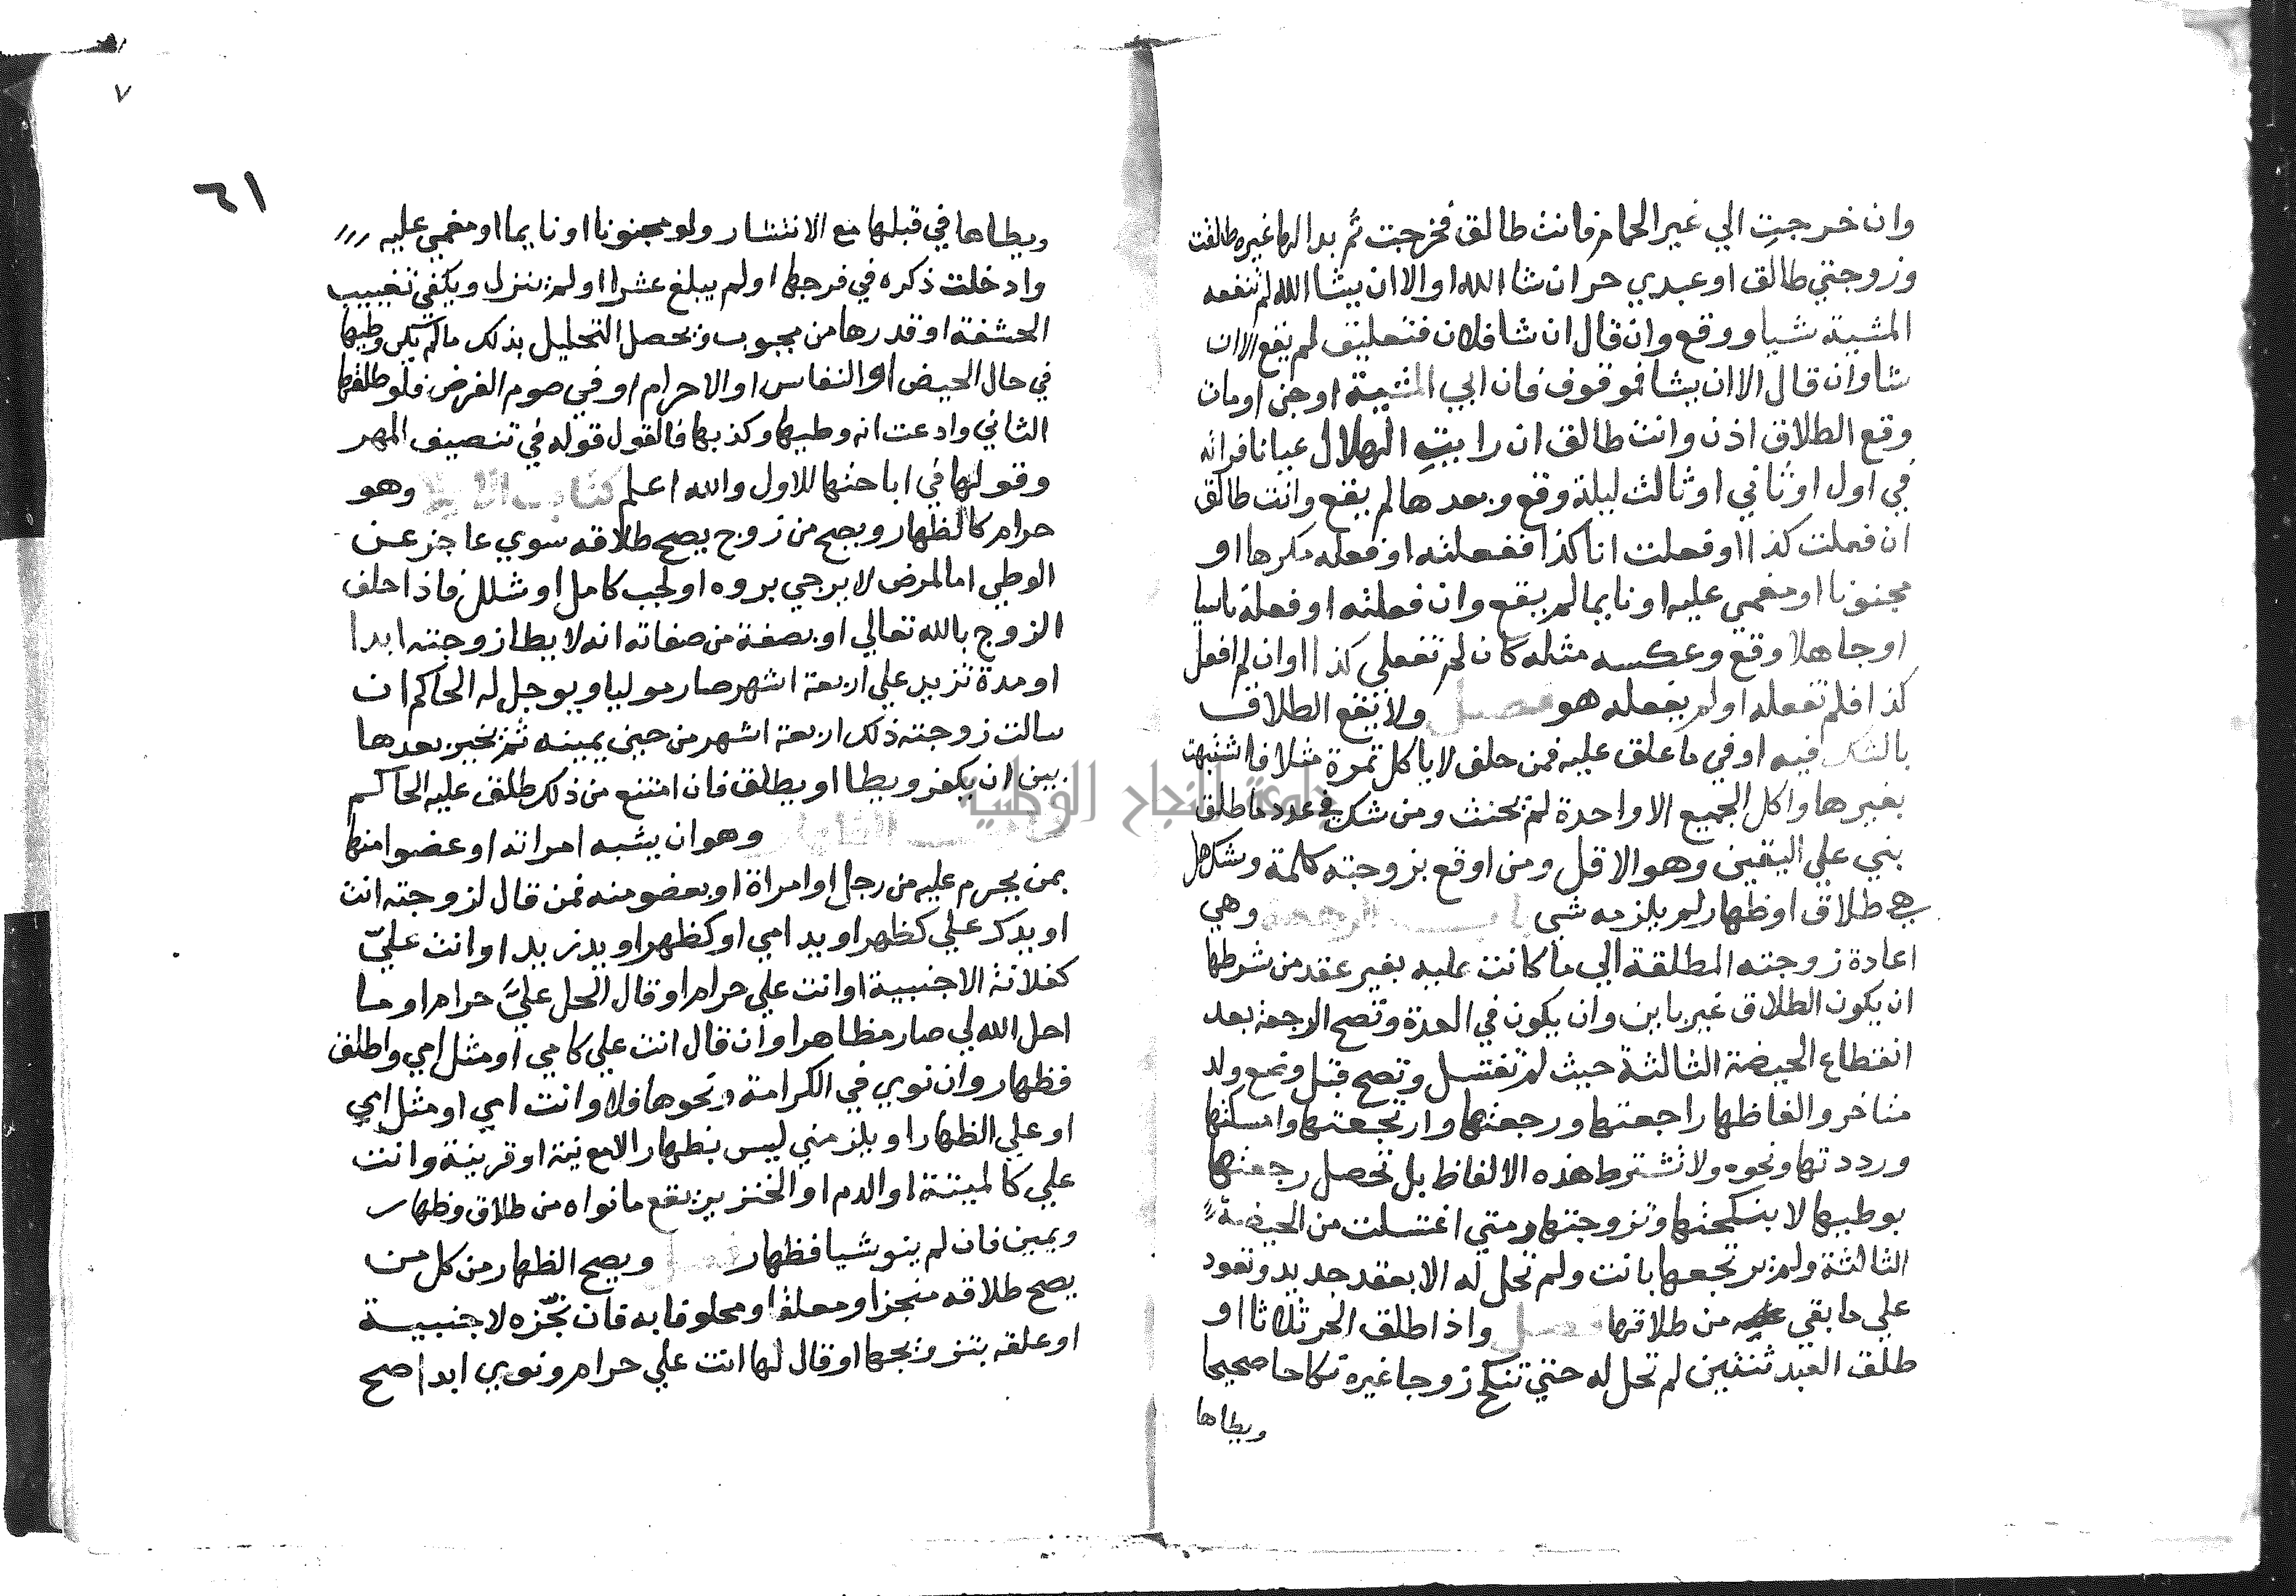 وان خرجتِ الي غير الحمام فانت طالق فخرجت ثم بدالها غيره طلقت
وزوجتي طالق او عبدي حر ان شا الله او الا ان يشا الله لم تنفعه
المشيه شيا ووقع وان قال ان شا فلان فتعليق لم يقع الا ان
شا وان قال الا ان يشا فموقوف فان ابي المشيه او جن او مات
وقع الطلاق اذن وانت طالق ان رايتِ الهلال عيانا فراته
في اول او ثاني او ثالث ليلة وقع وبعدها لم يقع وانت طالق
ان فعلت كذا او فعلت انا كذا ففعلته او فعله مكرها او
مجنونا او مغمي عليه او نايما لم يقع وان فعلته او فعله ناسيا
او جاهلا وقع وعكسه مثله كان لم تفعلي كذا او ان لم افعل
كذا فلم تفعله او لم يفعله هو فصل ولا يقع الطلاق
بالشك فيه او في ما علق عليه فمن حلف لا ياكل تمرة مثلا فاشتبهت
بغيرها واكل الجميع الا واحدة لم يحنث ومن شك في عدد ما طلق
بني علي اليقين وهو الاقل ومن اوقع بزوجته كلمة وشك هل
هي طلاق او ظهار لم يلزمه شي باب الرجعة وهي
اعادة زوجته المطلقة الي ما كانت عليه بغير عقد من شرطها
ان يكون الطلاق غير باين وان يكون في العدة وتصح الرجعة بعد
انقطاع الحيضة الثالثة حيث لم تغتسل وتصح قبل وضع ولد
متاخر والفاظها راجعتها ورجعتها وارتجعتها وامسكتها
ورددتها ونحوه ولا تشترط هذه الالفاظ بل تحصل رجعتها
بوطيها لا بنكحتها وتزوجتها ومتي اغتسلت من الحيضة
الثالثة ولم يرتجعها بانت ولم تحل له الا بعقد جديد وتعود
علي ما بقي من طلاقها فصل واذا طلق الحر ثلاثا او
طلق العبد ثنتين لم تحل له حتي تنكح زوجا غيره نكاحا صحيحا
ويطاها
٧
٦١
ويطاها في قبلها مع الانتشار ولو مجنونا او نايما او مغمي عليه
وادخلت ذكره في فرجها او لم يبلغ عشرا او لم ينزل ويكفي تغييب
الحشفة او قدرها من مجبوب ويحصل التحليل بذلك ما لم يكن وطيها
في حال الحيض او النفاس او الاحرام او في صوم الفرض فلو طلقها
الثاني وادعت انه وطيها وكذبها فالقول قوله في تنصيف المهر
وقولها في اباحتها للاول والله اعلم كتاب الايلا وهو
حرام كالظهار ويصح من زوج يصح طلاقه سوي عاجز عن
الوطي اما لمرض لا يرجي بروه او لجب كامل او شلل فاذا حلف
الزوج بالله تعالي او بصفة من صفاته انه لا يطا زوجته ابدا
او مدة تزيد علي اربعة اشهر صار موليا ويوجل له الحاكم ان
سالت زوجته ذلك اربعة اشهر من حين يمينه ثم يخير بعدها
بين ان يكفر ويطا او يطلق فان امتنع من ذلك طلق عليه الحاكم
كتاب الظهار وهو ان يشبه امراته او عضوا منها
بمن يحرم عليه من رجل او امراة او بعضو منه فمن قال لزوجته انت
او يدك علي كظهر او يد امي او كظهر او يد زيد او انت عليّ
كفلانة الاجنبية او انت علي حرام او قال الحل عليّ حرام او ما
احل الله لي صار مظاهرا وان قال انت علي كامي او مثل امي واطلق
فظهار وان نوي في الكرامة ونحوها فلا وانت امي او مثل امي
او علي الظهار او يلزمني ليس بظهار الا مع نية او قرينة وانت
علي كالميتة او الدم او الخنزير يقع ما نواه من طلاق وظهار
ويمين فان لم ينو شيا فظهار فصل ويصح الظهار من كل من
يصح طلاقه منجزا ومعلقا او محلوفا به فان نجّزه لاجنبية
او علقه بتزويجها او قال لها انت علي حرام ونوي ابدا صح
جامعة النجاح الوطنية